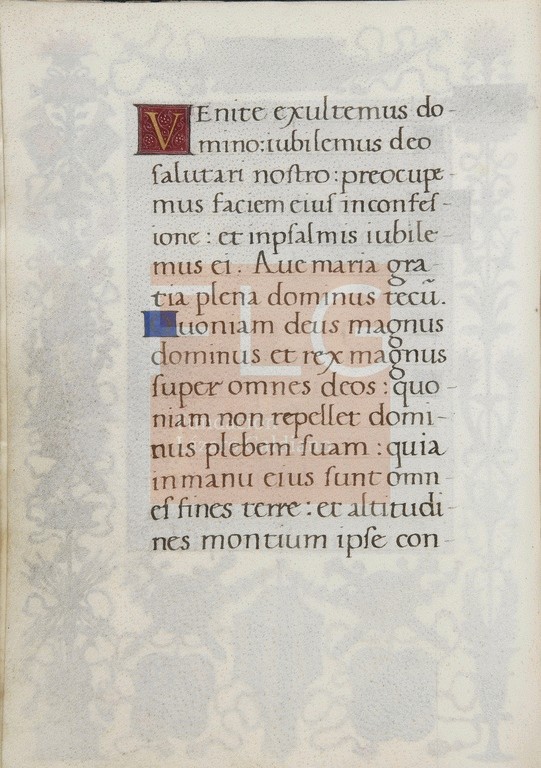 VEnite exultemus do-
mino:iubilemus deo
ſalutari noſtro:preocupe-
mus faciem eiuſ inconfeſ-
ione: et inpſalmis iubile-
mus ei. Aue maria gra-
tia plena dominus tecū.
Quoniam deus magnus
dominus et rex magnus
ſuper omnes deos: quo-
niam non repellet domi-
nus plebem ſuam: quia
inmanu eius ſunt omn-
eſ fines terre: et altitudi-
nes montium ipſe con-
FLG